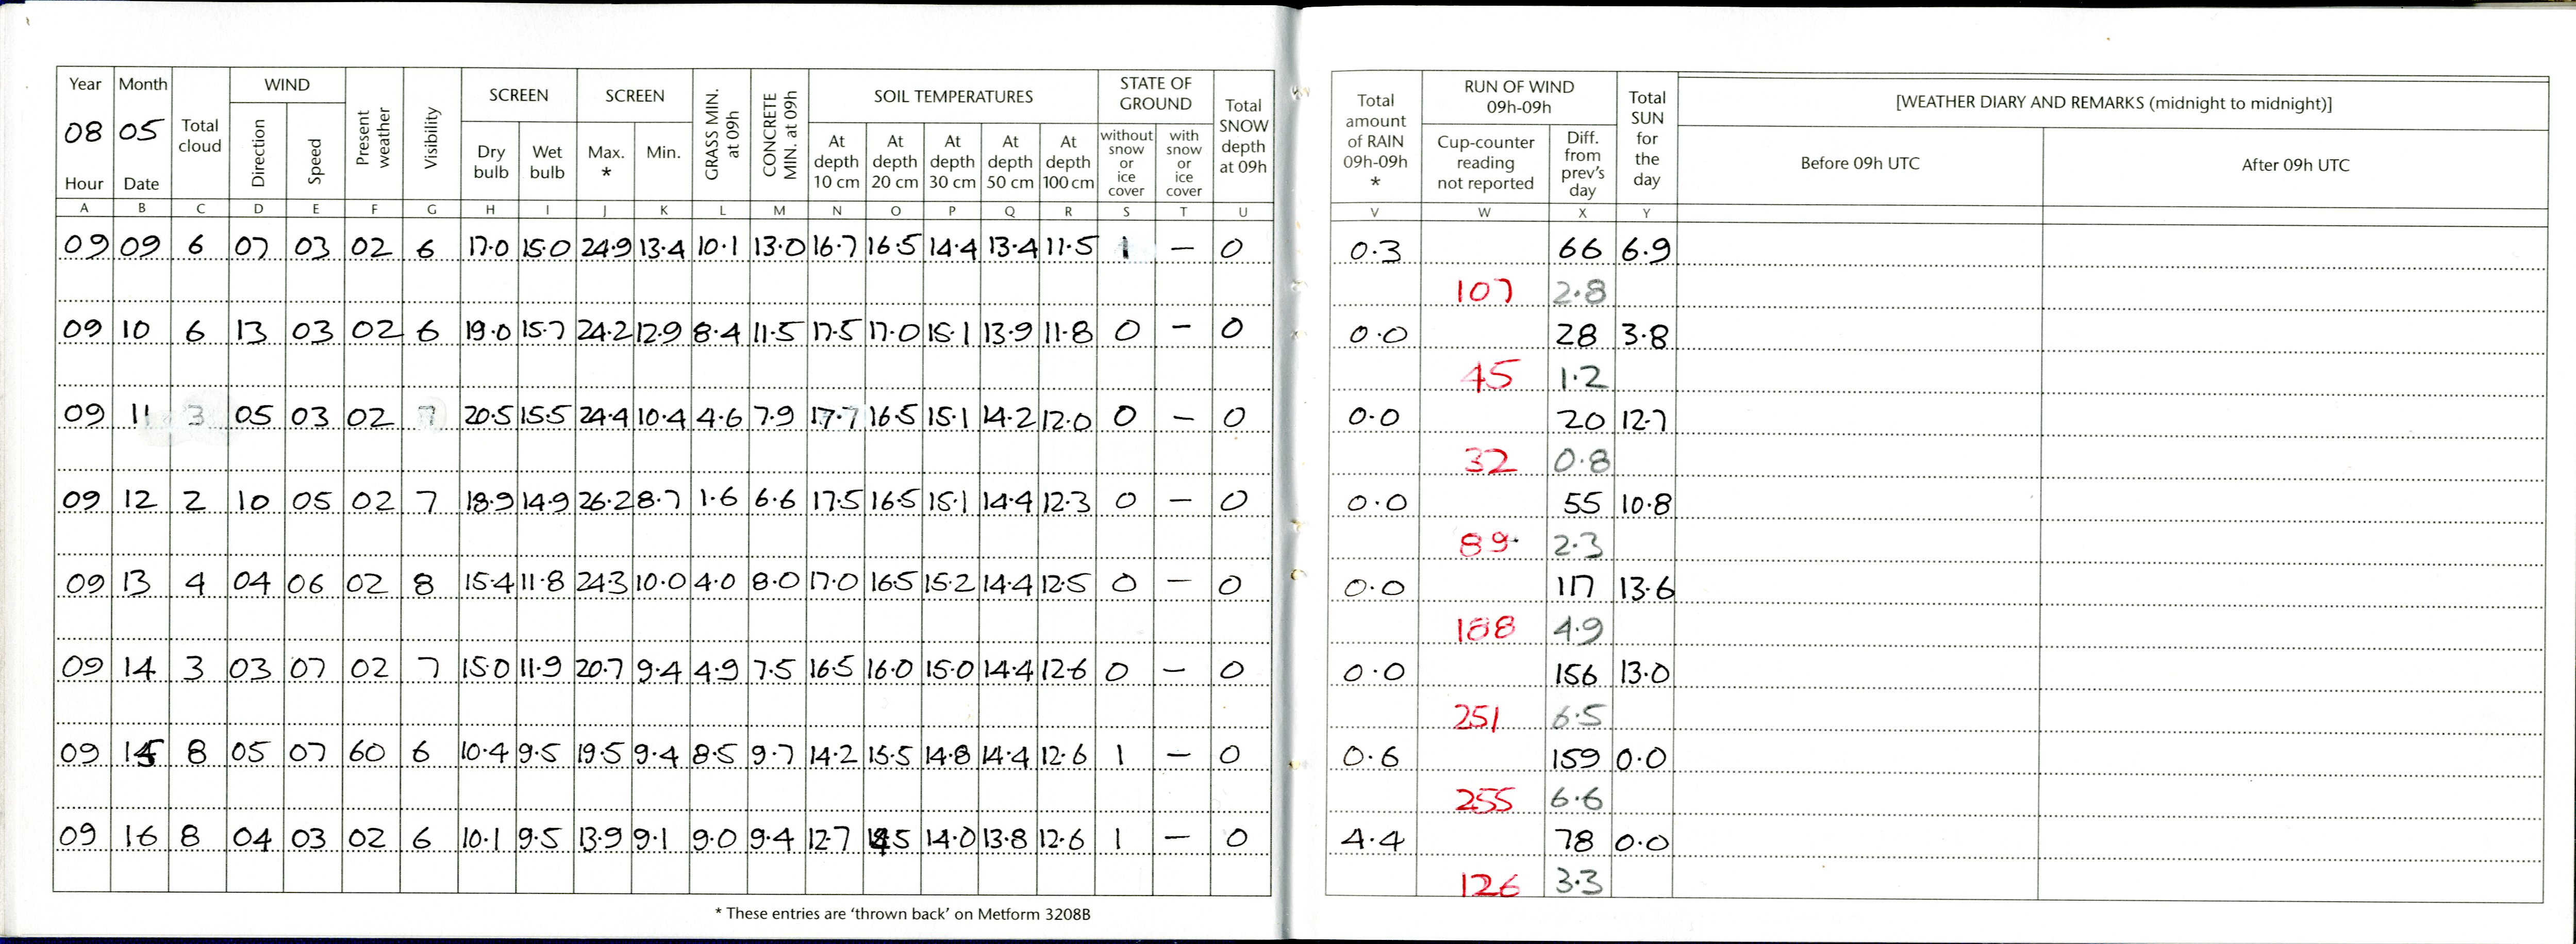 Year Month Total cloud WIND Present weather Visibility SCREEN SCREEN GRASS MIN. at 09h CONCRETE MIN. at 09h SOIL TEMPERATURES STATE OF GROUND Total SNOW depth at 09h
08 05 Direction Speed Dry bulb Wet bulb Max. * Min. At depth 10 cm At depth 20 cm At depth 30 cm At depth 50 cm At depth 100 cm without snow or ice cover with snow or ice cover
Hour Date
A B C D E F G H I J K L M N O P Q R S T U
09 09 6 07 03 02 6 17.0 15.0 24.9 13.4 10.1 13.0 16.7 16.5 14.4 13.4 11.5 1 – 0
09 10 6 13 03 02 6 19.0 15.7 24.2 12.9 8.4 11.5 17.5 17.0 15.1 13.9 11.8 0 – 0
09 11 3 05 03 02 7 20.5 15.5 24.4 10.4 4.6 7.9 17.7 16.5 15.1 14.2 12.0 0 – 0
09 12 2 10 05 02 7 18.9 14.9 26.2 8.7 1.6 6.6 17.5 16.5 15.1 14.4 12.3 0 – 0
09 13 4 04 06 02 8 15.4 11.8 24.3 10.0 4.0 8.0 17.0 16.5 15.2 14.4 12.5 0 – 0
09 14 3 03 07 02 7 15.0 11.9 20.7 9.4 4.9 7.5 16.5 16.0 15.0 14.4 12.6 0 – 0
09 15 8 05 07 60 6 10.4 9.5 19.5 9.4 8.5 9.7 14.2 15.5 14.8 14.4 12.6 1 – 0
09 16 8 04 03 02 6 10.1 9.5 13.9 9.1 9.0 9.4 12.7 14.5 14.0 13.8 12.6 1 – 0
* These entries are ‘thrown back’ on Metform 3208B
Total amount of RAIN 09h-09h * RUN OF WIND 09h-09h Total SUN for the day [WEATHER DIARY AND REMARKS (midnight to midnight)]
Cup-counter reading not reported Diff. from prev’s day Before 09h UTC After 09h UTC
V W X Y
0.3 66 6.9
107 2.8
0.0 28 3.8
45 1.2
0.0 20 12.7
32 0.8
0.0 55 10.8
89 2.3
0.0 117 13.6
188 4.9
0.0 156 13.0
251 6.5
0.6 159 0.0
255 6.6
4.4 78 0.0
126 3.3